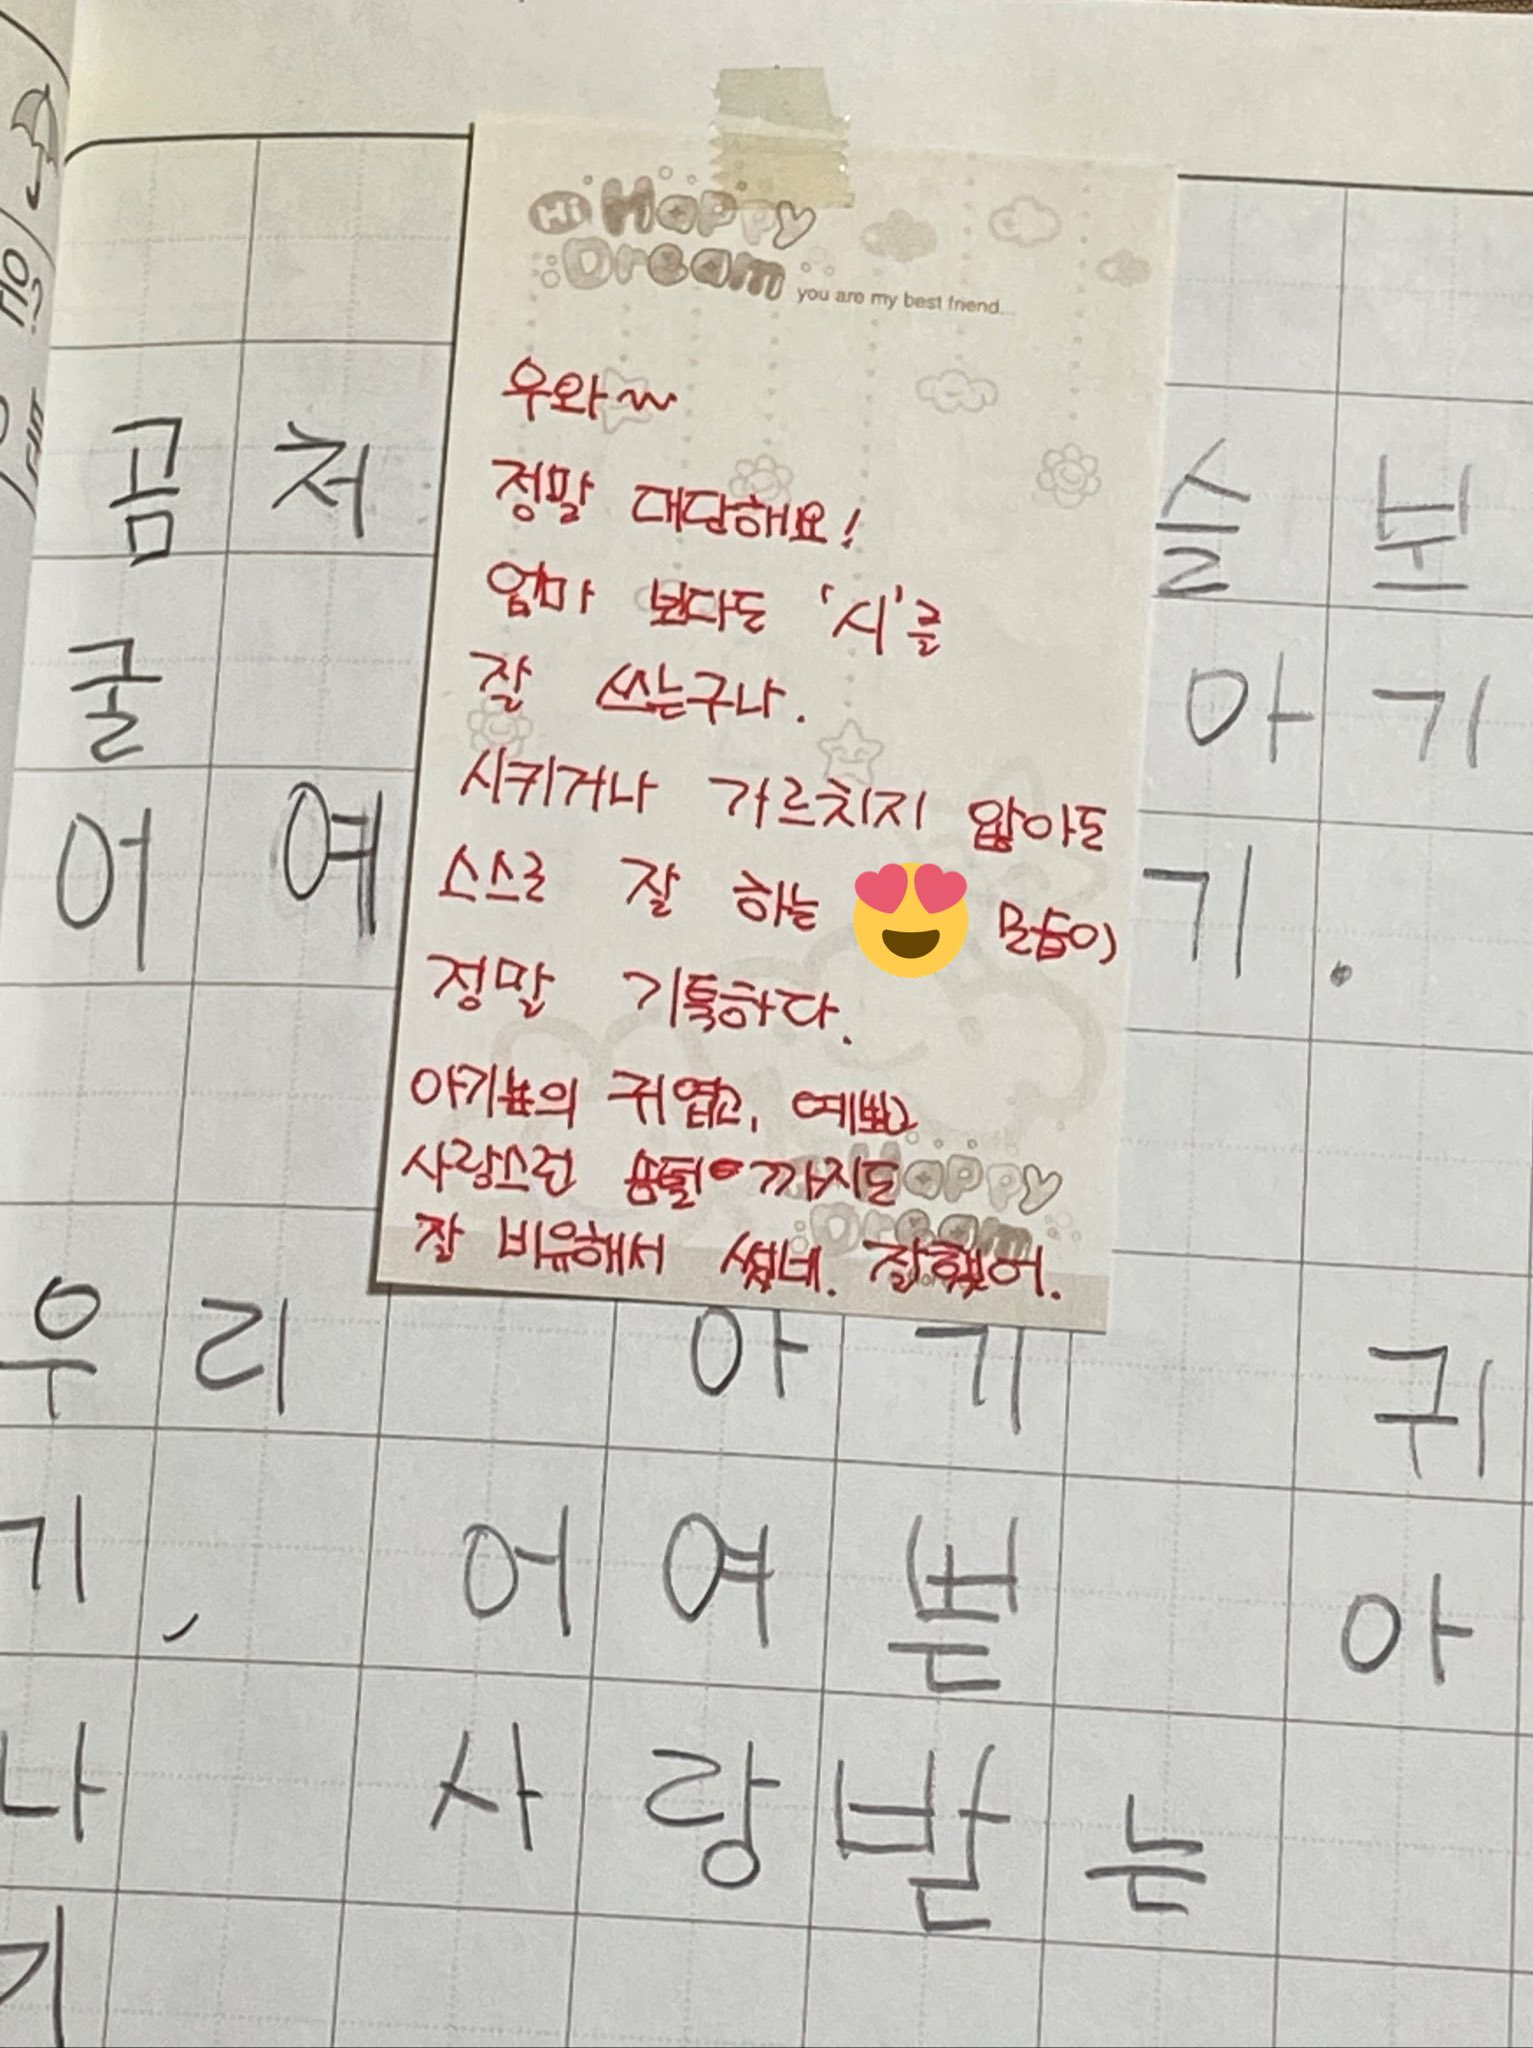 Hi Happy
Dream
you are my best friend...
우와~
정말 대당해요!
엄마 보다도 '시'를
잘 쓰는구나.
시키거나 가르치지 않아도
스스로 잘 하는 모습이
정말 기특하다.
아기뾰의 귀엽고, 예쁘고
사랑스런 솜털까지도
잘 비유해서 썼네. 잘했어.
Happy
Dream
곰 처 슬 본
굴 아 기
어 여 기.
우 리 아 기 귀
기, 어 여 쁜 아
나 사 랑 받 는
기